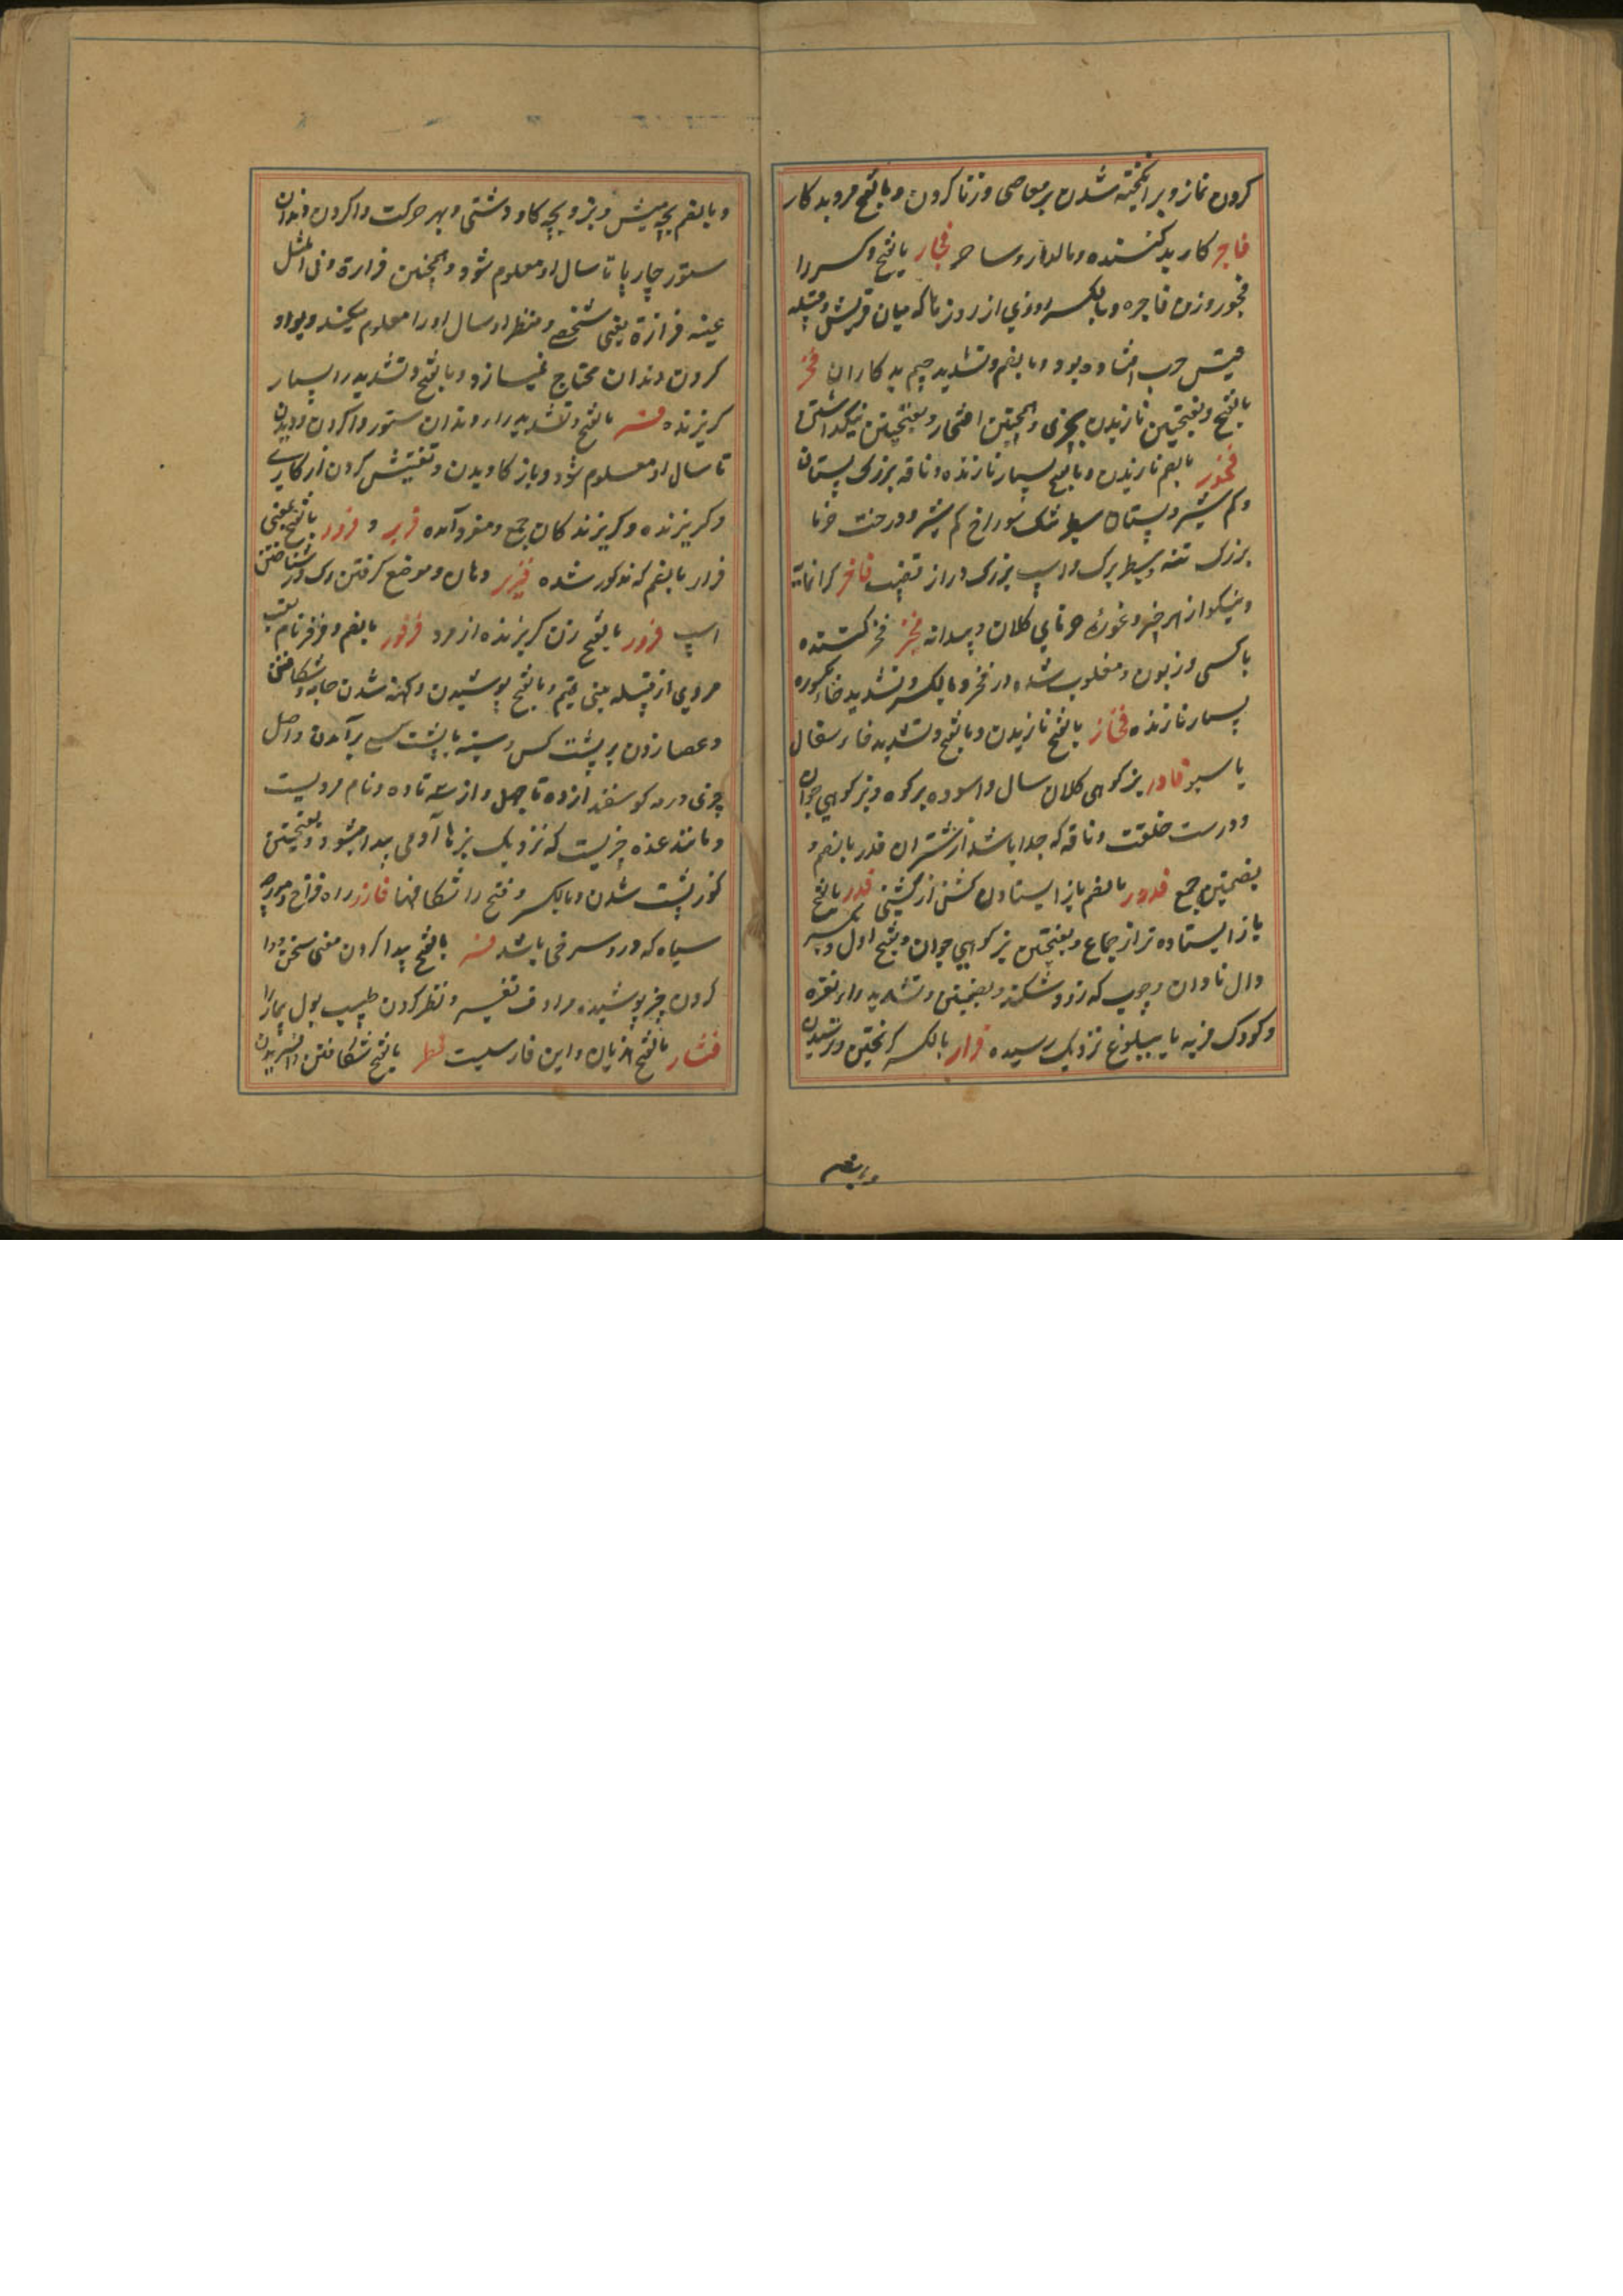 کردن نماز و برانکیخته شدن بر معاصی و زنا کردن و بالفتح مرد بد کار
فاجر کار بد کننده و مالدار و ساحر فجار بالفتح و کسر را
فجور و زن فاجره و بالکسر روزی از روزها که میان قریش و قبیله
قیس حرب افتاده بود و بالضم و تشدید جیم بد کاران فخر
بالفتح و بفتحتین نازیدن بچیزی و همچنین افتخار و بفتحتین
فخور بالضم نازیدن و بالفتح بسیار نازنده و ناقه بزرک پستان
و کم شیر و پستان سطبر تنک سوراخ کم شیر و درخت خرما
بزرک تنه سطبر برک و اسپ بزرک دراز قضیب فاخر کرانمایه
و نیکو از هر چیز و غورۀ خرمای کلان و بیدانه فخر کننده
با کسی و زبون و مغلوب شده در فخر و بالکسر و تشدید خاء مکسوره
بسیار نازنده فخار بالفتح نازیدن و بالفتح و تشدید خا سفال
یا سبو فادر بز کوهی کلان سال و آسوده بر کوه و بز کوهی جوان
و درست خلقت و ناقه که جدا باشد از شتران فدر بالضم و
بضمتین جمع فدور بالضم باز ایستادن کشن از کشنی فدر بالفتح
باز ایستاده تر از جماع و بفتحتین بز کوهی جوان و بفتح اول و کسر
دال نادان و چوب که زود شکند و بضمتین و تشدید را نقره
و کودک فربه یا ببلوغ نزدیک رسیده فرار بالکسر کریختن و ترسیدن
و بالضم
و بالضم بچه میش و بز و بچه کاو دشتی و بهر حرکت واکردن دندان
ستور چارپا تا سال او معلوم شود و همچنین فرارة و فی المثل
عینه فراره یعنی شخص و منظر او سال او را معلوم میکند و بوا
کردن دندان محتاج نمیسازد و بالفتح و تشدید را بسیار
کریزنده فر بالفتح و تشدید را دندان ستور واکردن و دیدن
تا سال او معلوم شود و باز کاویدن و تفتیش کردن از کاری
و کریزنده و کریزندکان جمع و مفرد آمده فریر و فرور بالفتح بمعنی
فرار بالضم که مذکور شده فریر دهان و موضع کرفتن رک در شناختن
اسپ فرور بالفتح زن کریزنده از مرد فرفور بالضم و فزر نام لقب
مردی از قبیله بنی تمیم و بالفتح پوشیدن و کهنه شدن جامه و شکافتن
و عصا زدن بر پشت کس و سینه یا پشت کسی برآمدن و اصل
چیزی و رمه کوسفند از ده تا چهل و از سه تا ده و نام مردیست
و مانند غده چیزیست که نزدیک بزها آدمی پیدا میشود و بفتحتین
کوز پشت شدن و بالکسر و فتح را شکافها فازر راه فراخ و مورچه
سیاه که در و سرخی باشد فسر بالفتح پیدا کردن معنی سخن و وا
کردن چیز پوشیده مرادف تفسیر و نظر کردن طبیب بول بیمار را
فشار بالفتح هذیان و این فارسیست فطر بالفتح شکافتن و آفریدن